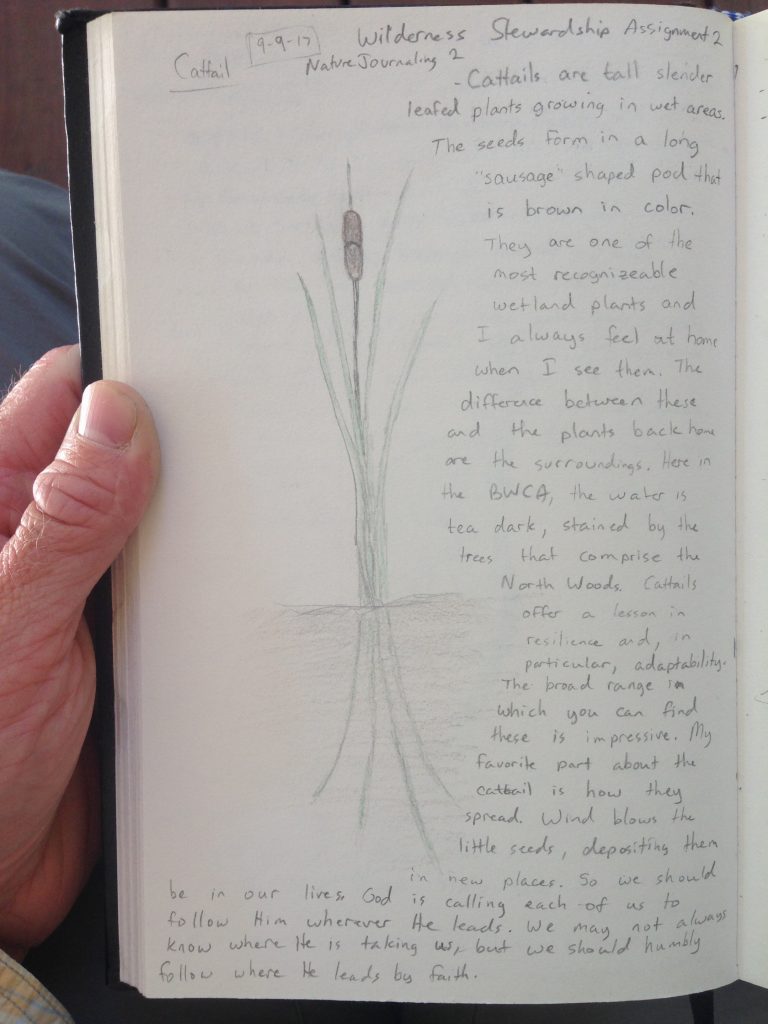 Wilderness Stewardship Assignment 2
9-9-17
Cattail
Nature Journaling 2
- Cattails are tall slender
leafed plants growing in wet areas.
The seeds form in a long
"sausage" shaped pod that
is brown in color.
They are one of the
most recognizeable
wetland plants and
I always feel at home
when I see them. The
difference between these
and the plants back home
are the surroundings. Here in
the BWCA, the water is
tea dark, stained by the
trees that comprise the
North Woods. Cattails
offer a lesson in
resilience and, in
particular, adaptability.
The broad range in
which you can find
these is impressive. My
favorite part about the
cattail is how they
spread. Wind blows the
little seeds, depositing them
in new places. So we should
be in our lives. God is calling each of us to
follow Him wherever He leads. We may not always
know where He is taking us, but we should humbly
follow where He leads by faith.